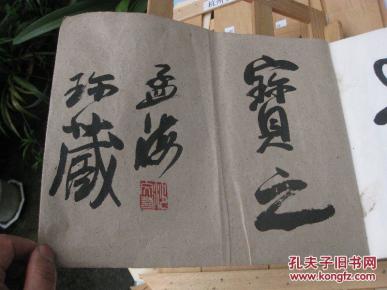 寶之
孟海
珎藏
孔夫子旧书网
www.kongfz.com